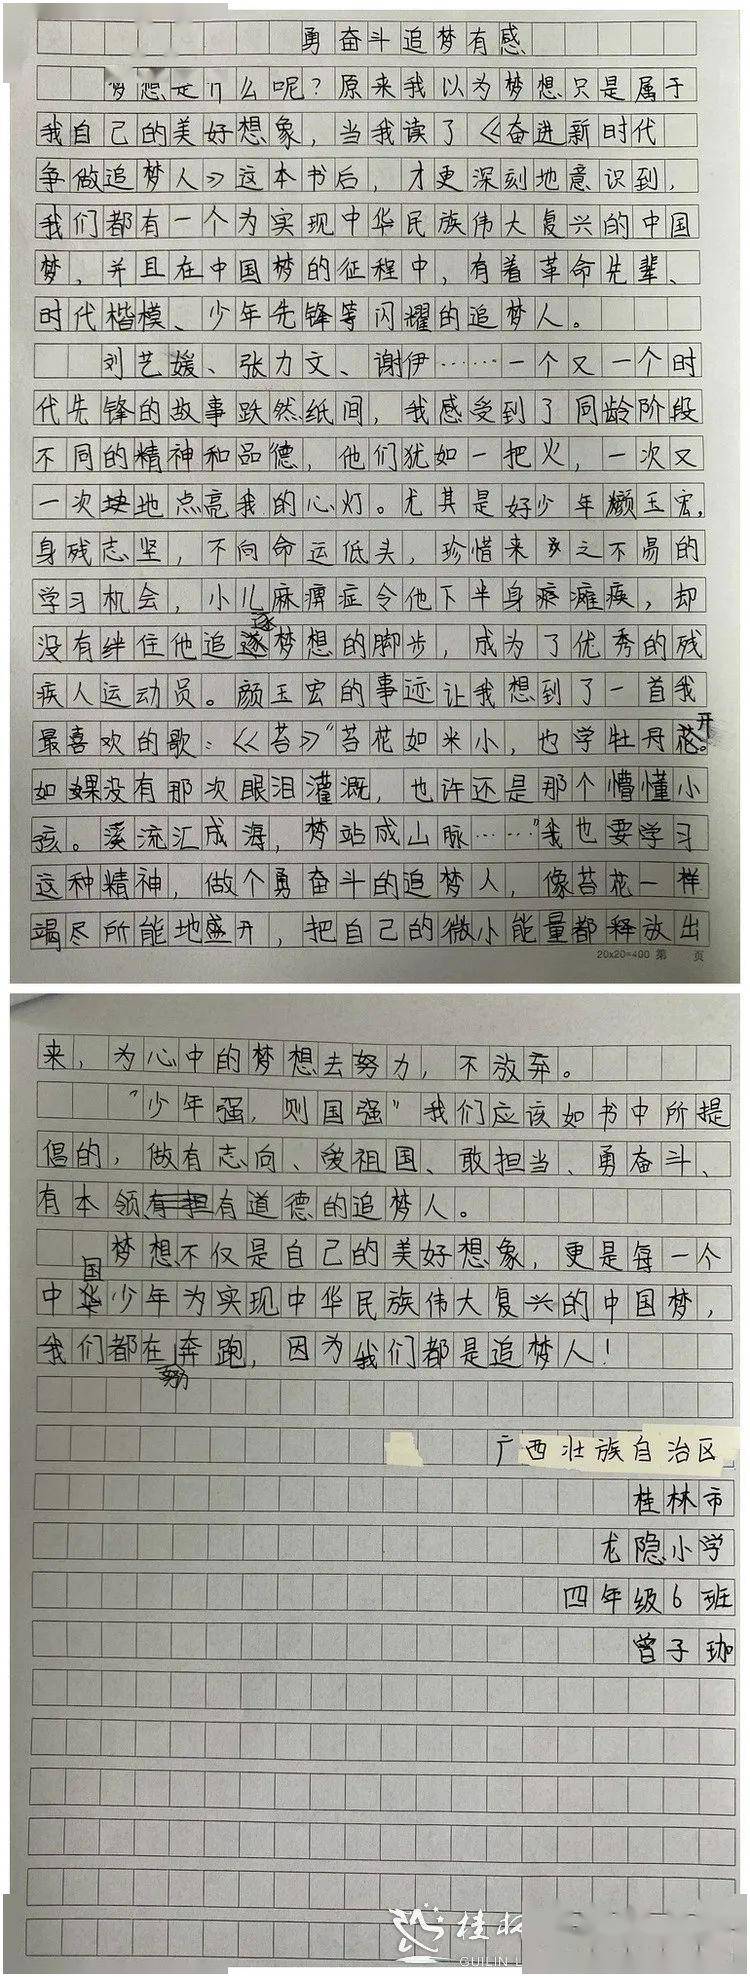 勇奋斗追梦有感
梦想是什么呢？原来我以为梦想只是属于
我自己的美好想象，当我读了《奋进新时代
争做追梦人》这本书后，才更深刻地意识到，
我们都有一个为实现中华民族伟大复兴的中国
梦，并且在中国梦的征程中，有着革命先辈、
时代楷模、少年先锋等闪耀的追梦人。
刘艺媛、张力文、谢伊……一个又一个时
代先锋的故事跃然纸间，我感受到了同龄阶段
不同的精神和品德，他们犹如一把火，一次又
一次地点亮我的心灯。尤其是好少年颜玉宏，
身残志坚，不向命运低头，珍惜来之不易的
学习机会，小儿麻痹症令他下半身瘫痪，却
没有绊住他追逐梦想的脚步，成为了优秀的残
疾人运动员。颜玉宏的事迹让我想到了一首我
最喜欢的歌：《苔》“苔花如米小，也学牡丹开。
如果没有那次眼泪灌溉，也许还是那个懵懂小
孩。溪流汇成海，梦站成山脉……”我也要学习
这种精神，做个勇奋斗的追梦人，像苔花一样
竭尽所能地盛开，把自己的微小能量都释放出
20×20=400 第 页
来，为心中的梦想去努力，不放弃。
“少年强，则国强”我们应该如书中所提
倡的，做有志向、爱祖国、敢担当、勇奋斗、
有本领有道德的追梦人。
梦想不仅是自己的美好想象，更是每一个
中国少年为实现中华民族伟大复兴的中国梦，
我们都在努奔跑，因为我们都是追梦人！
广西壮族自治区
桂林市
龙隐小学
四年级6班
曾子珈
桂林
GUILIN L